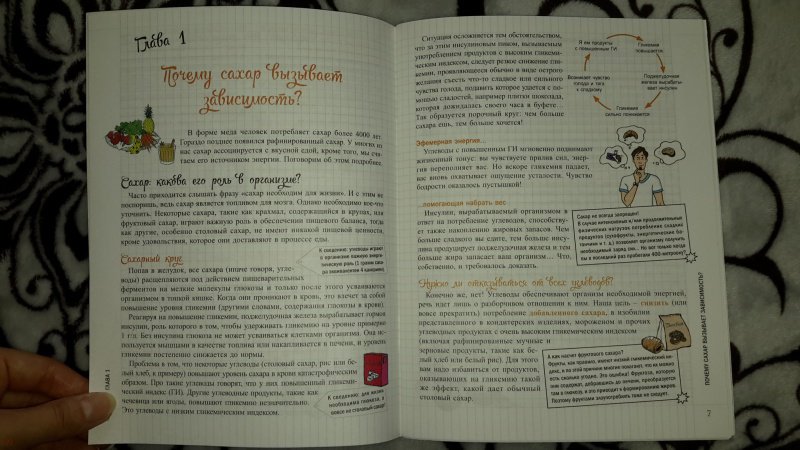 Глава 1
Почему сахар вызывает
зависимость?
В форме меда человек потребляет сахар более 4000 лет.
Гораздо позднее появился рафинированный сахар. У многих из
нас сахар ассоциируется с вкусной едой, кроме того, мы счи-
таем его источником энергии. Поговорим об этом подробнее.
Сахар: какова его роль в организме?
Часто приходится слышать фразу «сахар необходим для жизни». И с этим не
поспоришь, ведь сахар является топливом для мозга. Однако необходимо кое-что
уточнить. Некоторые сахара, такие как крахмал, содержащийся в крупах, или
фруктовый сахар, играют важную роль в обеспечении пищевого баланса, тогда как
другие, особенно столовый сахар, не имеют никакой пищевой ценности,
кроме удовольствия, которое они доставляют в процессе еды.
К сведению: углеводы играют
в организме важную энерге-
тическую роль (1 грамм саха-
ра эквивалентен 4 калориям).
Сахарный круг
Попав в желудок, все сахара (иначе говоря, угле-
воды) расщепляются под действием пищеварительных
ферментов на мелкие молекулы глюкозы и только после этого усваиваются
организмом в тонкой кишке. Когда они проникают в кровь, это влечет за собой
повышение уровня гликемии (другими словами, содержания глюкозы в крови).
Реагируя на повышение гликемии, поджелудочная железа вырабатывает гормон
инсулин, роль которого в том, чтобы удерживать гликемию на уровне примерно
1 г/л. Без инсулина глюкоза не может усваиваться клетками организма. Она ис-
пользуется мышцами в качестве топлива или накапливается в печени, и уровень
гликемии постепенно снижается до нормы.
Проблема в том, что некоторые углеводы (столовый сахар, рис или бе-
лый хлеб, к примеру) повышают уровень сахара в крови катастрофическим
образом. Про такие углеводы говорят, что у них повышенный гликеми-
ческий индекс (ГИ). Другие углеводные продукты, такие как
чечевица или ягоды, повышают гликемию незначительно.
Это углеводы с низким гликемическим индексом.
К сведению: для жизни
необходима глюкоза, а
вовсе не столовый сахар!
ГЛАВА 1
Ситуация осложняется тем обстоятельством,
что за этим инсулиновым пиком, вызываемым
употреблением продуктов с высоким гликеми-
ческим индексом, следует резкое снижение гли-
кемии, проявляющееся обычно в виде острого
желания съесть что-то сладкое или сильного
чувства голода, подавить которое удается с по-
мощью сладостей, например плитки шоколада,
которая дожидалась своего часа в буфете...
Так образуется порочный круг: чем больше
сахара ешь, тем больше хочется!
Я ем продукты
с повышенным ГИ
Гликемия
повышается
Поджелудочная
железа выраба-
тывает инсулин
Гликемия
сильно понижается
Возникает чувство
голода и тяга
к сладкому
Эфемерная энергия...
Углеводы с повышенным ГИ мгновенно поднимают
жизненный тонус: вы чувствуете прилив сил, энер-
гия переполняет вас. Но вскоре гликемия падает,
вас вновь охватывает ощущение усталости. Чувство
бодрости оказалось пустышкой!
...помогающая набрать вес
Инсулин, вырабатываемый организмом в
ответ на потребление углеводов, способству-
ет также накоплению жировых запасов. Чем
больше сладкого вы едите, тем больше инсу-
лина продуцирует поджелудочная железа и тем
больше жира запасает ваш организм... Что,
собственно, и требовалось доказать.
Сахар не всегда запрещен!
В случае интенсивных и/или продолжительных
физических нагрузок потребление сладких
продуктов (сухофрукты, энергетические ба-
тончики и т. д.) позволяет организму получить
необходимый заряд сил... Но вот только когда
вы в последний раз пробегали 400-метровку?
Нужно ли отказываться от всех углеводов?
Конечно же, нет! Углеводы обеспечивают организм необходимой энергией,
речь идет лишь о разборчивом отношении к ним. Наша цель – снизить (или
вовсе прекратить) потребление добавленного сахара, в изобилии
представленного в кондитерских изделиях, мороженом и прочих
углеводных продуктах с очень высоким гликемическим индексом
(включая рафинированные мучные и
зерновые продукты, такие как бе-
лый хлеб или белый рис). Для этого
вам надо избавиться от продуктов,
оказывающих на гликемию такой
же эффект, какой дает обычный
столовый сахар.
А как насчет фруктового сахара?
Фрукты, как правило, имеют низкий гликемический ин-
декс, и по этой причине многие полагают, что их можно
есть сколько угодно. Это ошибка! Фруктоза, которую
они содержат, добравшись до печени, преобразуется
там в глюкозу, и это приводит к формированию жира.
Поэтому фруктами злоупотреблять тоже не следует.
ПОЧЕМУ САХАР ВЫЗЫВАЕТ ЗАВИСИМОСТЬ?
7